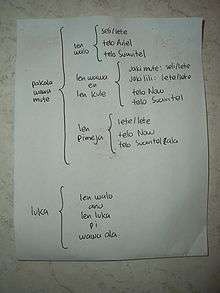 pakala
wawa
mute
len
walo
seli/lete
telo Ariel
telo Suavitel
len wawa
en
len kule
jaki mute: seli/lete
jaki lili: lete/lete
telo Now
telo Suavitel
len
pimeja
lete/lete
telo Now
telo Suavitel ala
luka
len walo
anu
len luka
pi
wawa ala